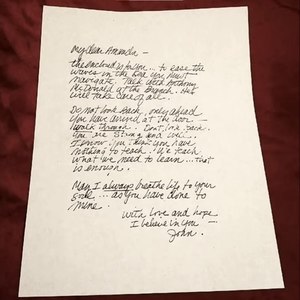 My dear Amanda –
The enclosed is for you... to ease the
waves in the sea you must
navigate. Talk with Anthony
McDonald at the branch. He
will take care of all.
Do not look back, only ahead
You have arrived at the door –
Walk through. Don't look back.
You are strong and well.
I know you you have
nothing to teach. We teach
what we need to learn... that
is enough.
May I always breathe life to your
soul... as you have done to
mine.
With love and hope
I believe in you –
John.